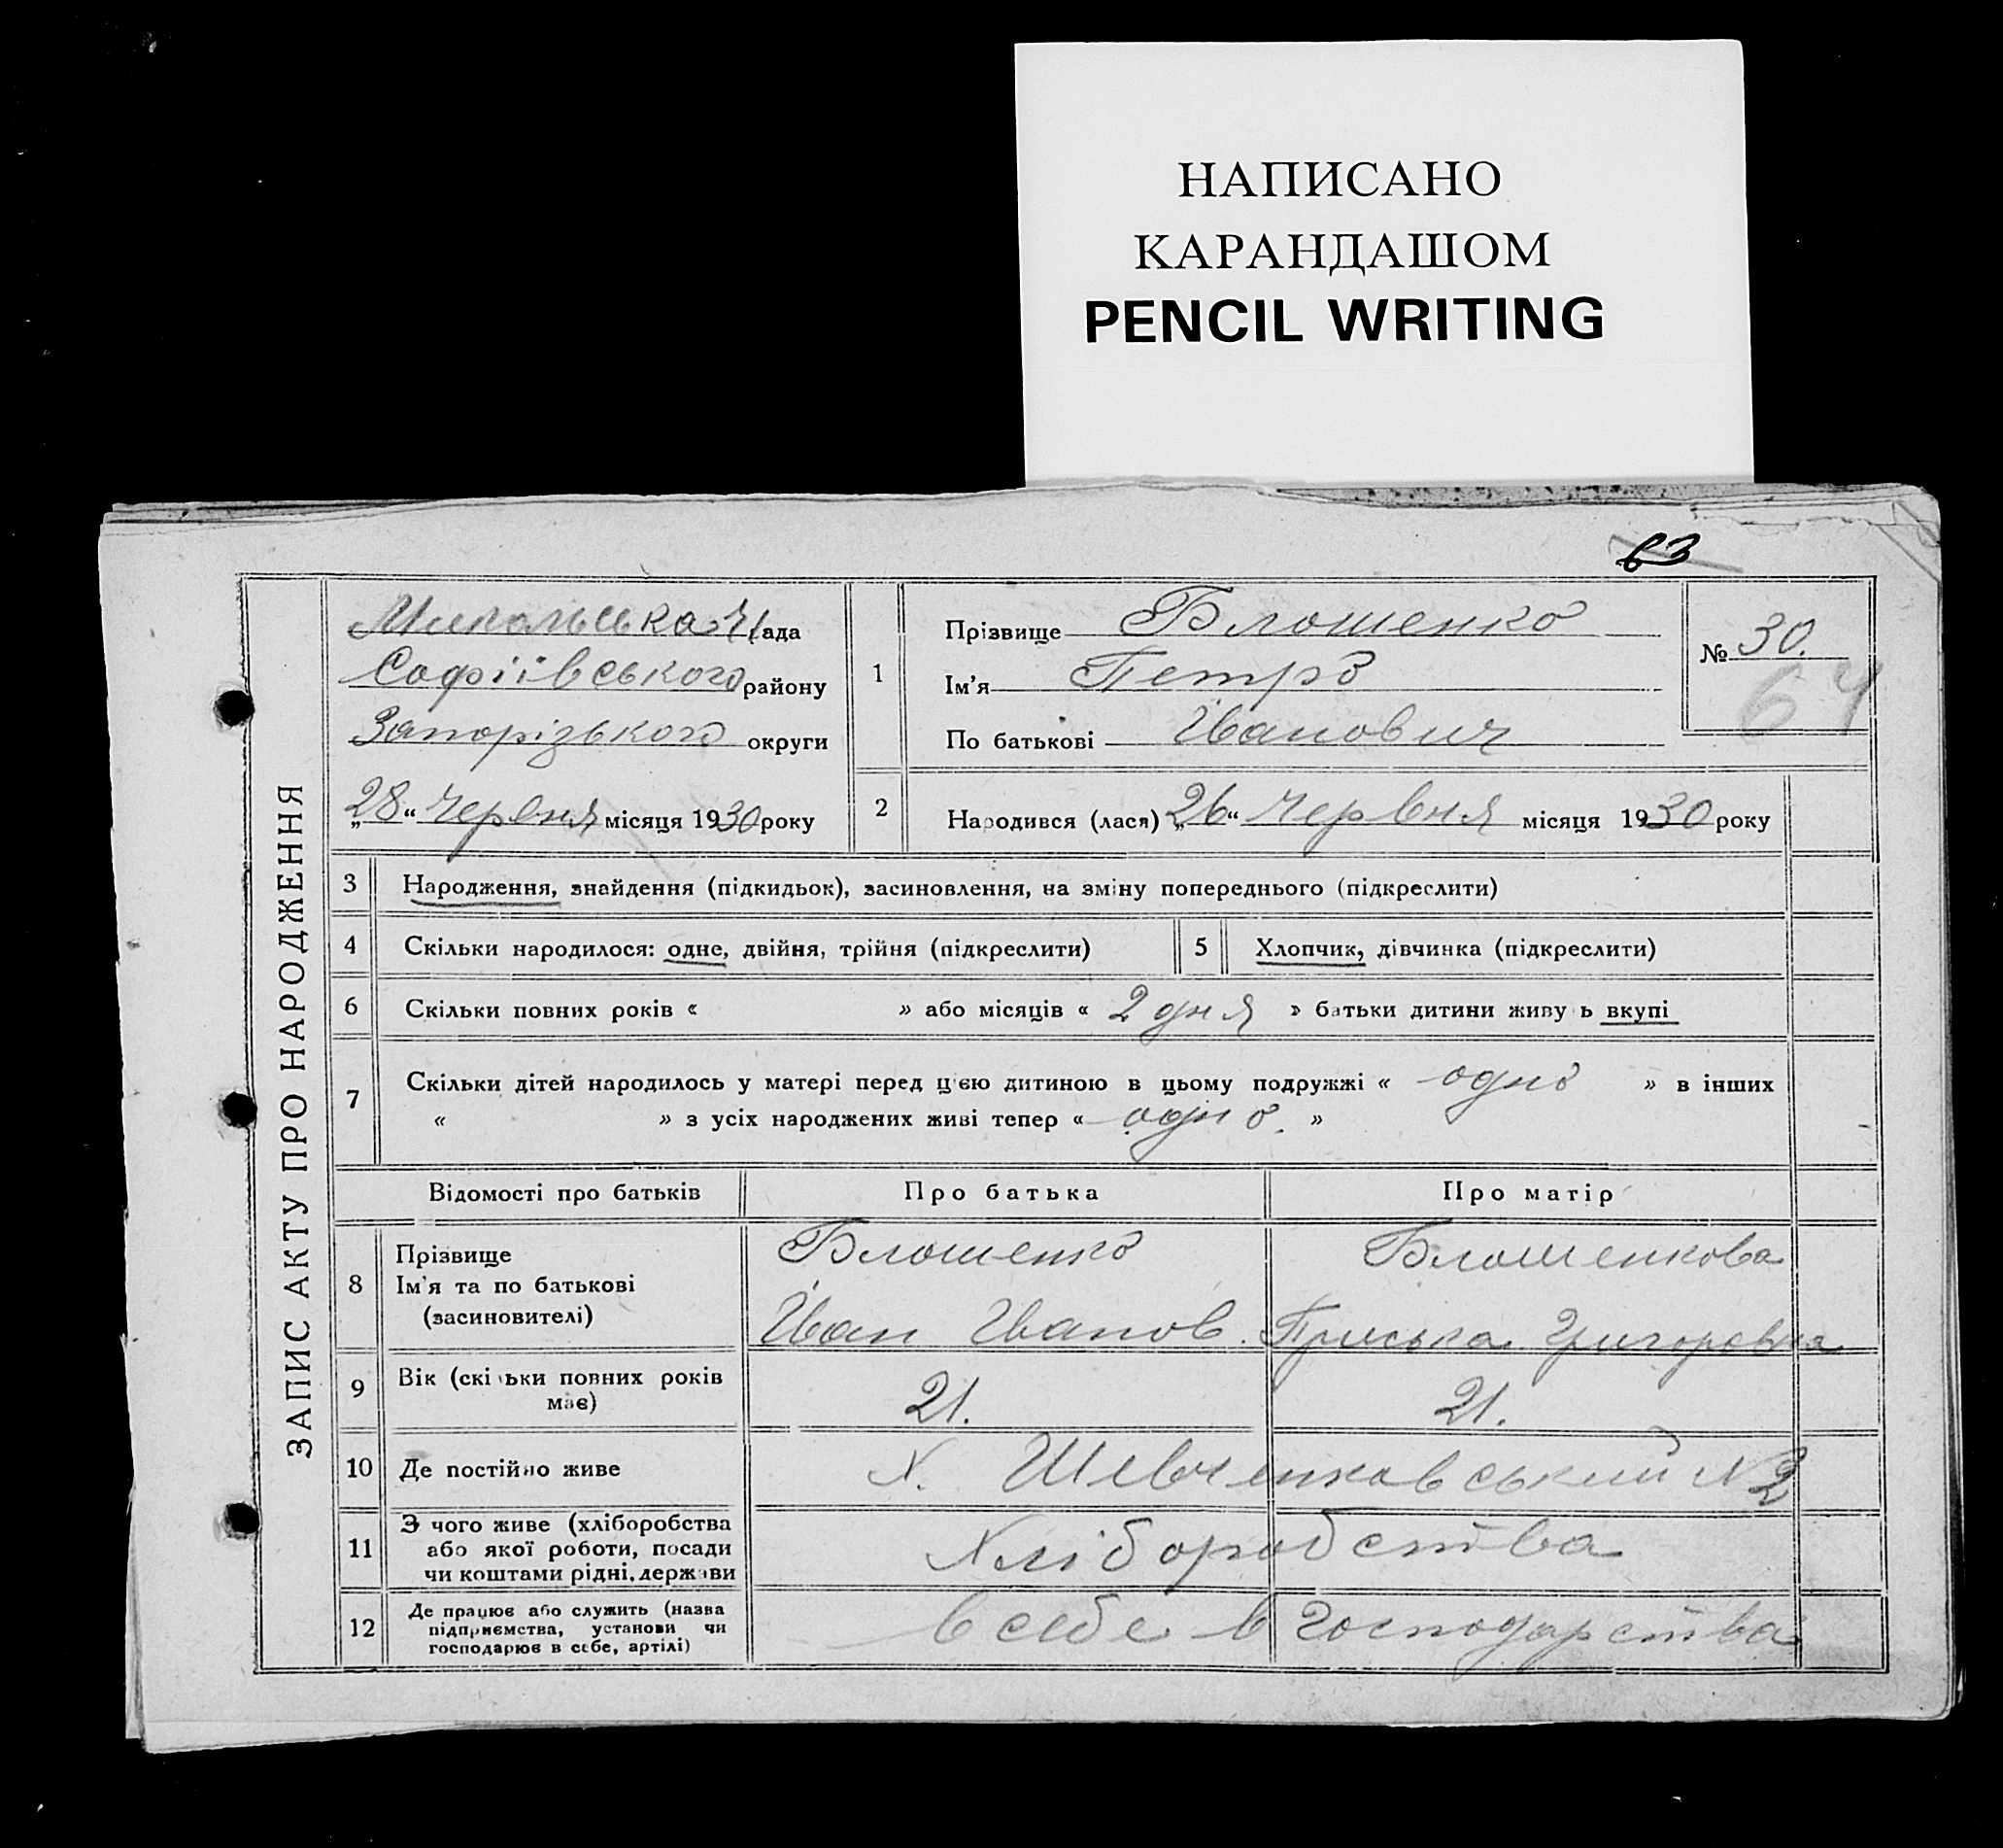 НАПИСАНО
КАРАНДАШОМ
PENCIL WRITING
63
ЗАПИС АКТУ ПРО НАРОДЖЕННЯ
рада
Софіївського району
Запорізького округи
„28“ Червня місяця 1930 року
1
Прізвище Блошенко
Ім'я Петро
По батькові Іванович
№ 30.
64
2
Народився (лася) „26“ Червня місяця 1930 року
3 Народження, знайдення (підкидьок), засиновлення, на зміну попереднього (підкреслити)
4 Скільки народилося: одне, двійня, трійня (підкреслити)
5 Хлопчик, дівчинка (підкреслити)
6 Скільки повних років « » або місяців « 2 дня » батьки дитини живу ь вкупі
7 Скільки дітей народилось у матері перед цією дитиною в цьому подружжі « одно » в інших
« » з усіх народжених живі тепер « одно. »
Відомості про батьків Про батька Про матір
8 Прізвище
Ім'я та по батькові
(засиновителі)
Блошенко
Іван Іванов.
Блошенкова
Приська Григоровна
9 Вік (скільки повних років
має)
21. 21.
10 Де постійно живе Х. Шевченковський № 2
11 З чого живе (хліборобства
або якої роботи, посади
чи коштами рідні, держави
Хліборобства
12 Де працює або служить (назва
підприємства, установи чи
господарює в себе, артілі)
В себе в господарства